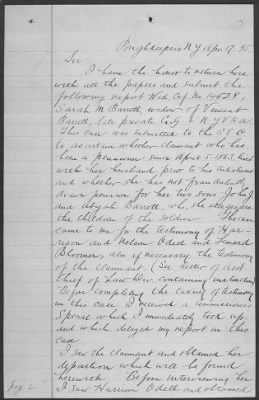 Poughkeepsie N.Y. Apr. 17. 85
Sir
I have the honor to return here
with all the papers and submit the
following report Wid. Cof. No. 14528,
Sarah M. Barrett, widow of Vincent
Barrett, late private Co. G. 6 N.Y. H A.
This case was submitted to the S.E.D
to ascertain whether claimant who has
been a pensioner since April 5. 1863. lived
with her husband prior to his
and whether she has not fraudulently
drawn pension for her two sons John J
and Abijah Barrett, who, she alleges, are
the children of the soldier. The case
came to me for the testimony of Har-
rison and Nelson Odell and Leonard
Bloomer, also if necessary the testimony
of the claimant, (See letter of asst
Chief of Law Div. containing instructions)
Before completing the taking of testimony
in this case I received a commissioners
Special which I immediately took up,
and which delayed my report in this
case
I saw the claimant and obtained her
deposition which will be found
herewith. Before interviewing her
I saw Harrison Odell and obtained
Pag. 2